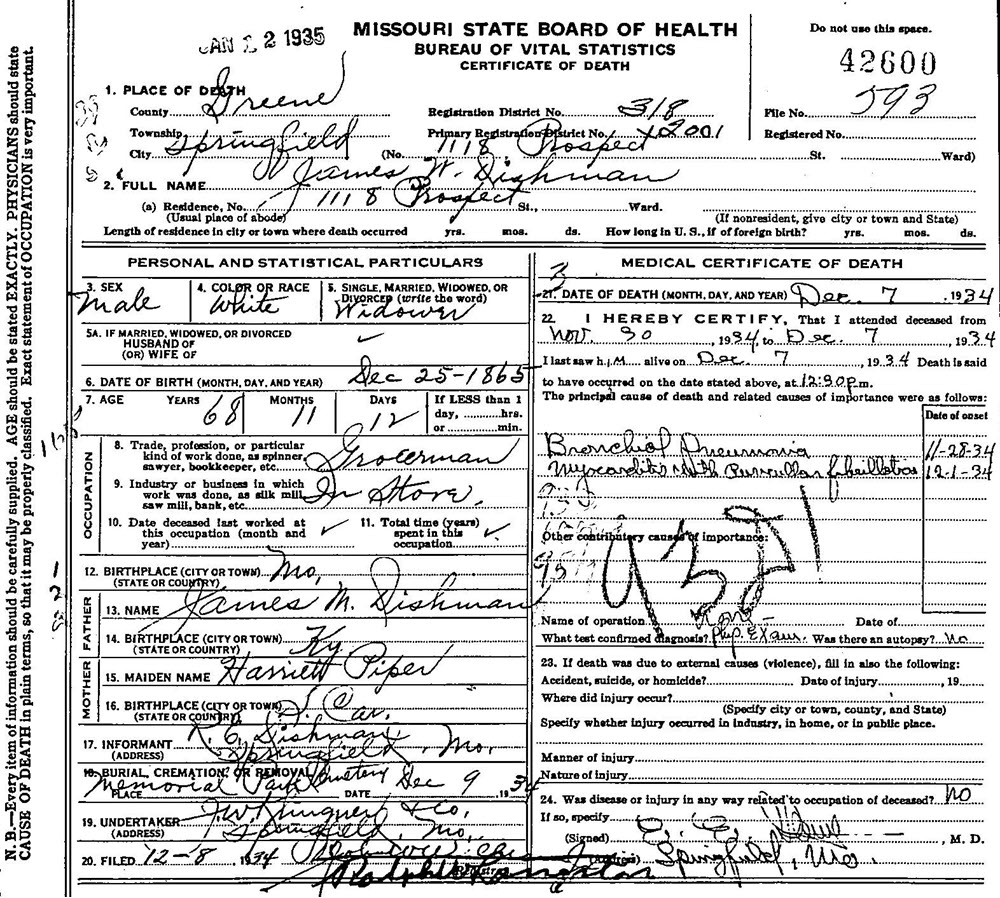 JAN 12 1935
MISSOURI STATE BOARD OF HEALTH
BUREAU OF VITAL STATISTICS
CERTIFICATE OF DEATH
Do not use this space.
42600
1. PLACE OF DEATH
County Greene
Registration District No. 318
File No. 593
Township
Primary Registration District No. 2001
Registered No.
City Springfield (No. 1118 Prospect St. Ward)
2. FULL NAME James W. Dishman
(a) Residence, No. 1118 Prospect St., Ward.
(Usual place of abode)
(If nonresident, give city or town and State)
Length of residence in city or town where death occurred yrs. mos. ds. How long in U. S., if of foreign birth? yrs. mos. ds.
PERSONAL AND STATISTICAL PARTICULARS
3. SEX
Male
4. COLOR OR RACE
White
5. SINGLE, MARRIED, WIDOWED, OR
DIVORCED (write the word)
Widower
5A. IF MARRIED, WIDOWED, OR DIVORCED
HUSBAND OF
(OR) WIFE OF
6. DATE OF BIRTH (MONTH, DAY, AND YEAR) Dec 25-1865
7. AGE YEARS MONTHS DAYS If LESS than 1
68 11 12 day, hrs.
or min.
OCCUPATION
8. Trade, profession, or particular
kind of work done, as spinner,
sawyer, bookkeeper, etc. Groceryman
9. Industry or business in which
work was done, as silk mill,
saw mill, bank, etc. In Store.
10. Date deceased last worked at
this occupation (month and
year)
11. Total time (years)
spent in this
occupation
12. BIRTHPLACE (CITY OR TOWN) Mo.
(STATE OR COUNTRY)
FATHER
13. NAME James M. Dishman
14. BIRTHPLACE (CITY OR TOWN) Ky.
(STATE OR COUNTRY)
MOTHER
15. MAIDEN NAME Harriett Piper
16. BIRTHPLACE (CITY OR TOWN) Car.
(STATE OR COUNTRY)
17. INFORMANT Dishman
(ADDRESS) Springfield, Mo.
18. BURIAL, CREMATION, OR REMOVAL
PLACE Memorial Park Cemetery DATE Dec 9, 1934
19. UNDERTAKER J.W. Klingner & Co.
(ADDRESS) Springfield, Mo.
20. FILED 12-8, 1934
Registrar
MEDICAL CERTIFICATE OF DEATH
21. DATE OF DEATH (MONTH, DAY, AND YEAR) Dec. 7, 1934
22. I HEREBY CERTIFY, That I attended deceased from
Nov. 30, 1934, to Dec. 7, 1934
I last saw him alive on Dec. 7, 1934 Death is said
to have occurred on the date stated above, at 12:30 p.m.
The principal cause of death and related causes of importance were as follows:
Date of onset
Bronchial Pneumonia 11-28-34
Myocarditis with fibrillation 12-1-34
Other contributory causes of importance:
Name of operation Date of
What test confirmed diagnosis? Phy. Exam. Was there an autopsy? No
23. If death was due to external causes (violence), fill in also the following:
Accident, suicide, or homicide? Date of injury, 19
Where did injury occur?
(Specify city or town, county, and State)
Specify whether injury occurred in industry, in home, or in public place.
Manner of injury
Nature of injury
24. Was disease or injury in any way related to occupation of deceased? No
If so, specify
(Signed) E. E., M. D.
(Address) Springfield, Mo.
N. B.—Every item of information should be carefully supplied. AGE should be stated EXACTLY. PHYSICIANS should state
CAUSE OF DEATH in plain terms, so that it may be properly classified. Exact statement of OCCUPATION is very important.